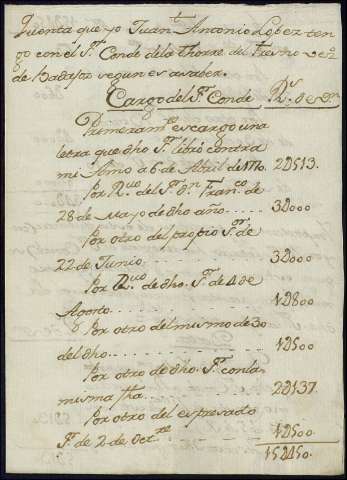 Quenta que yo Juan Antonio Lopez ten
go con el Sr. Conde de la Thorre del fresno Vezº
de Badajoz segun es a saver.
Cargo del Sr. Conde Rs. de Vn.
Primeramte. es cargo una
letra que dho Sr. libró contra
mi Amo a 6 de Abril de 1770. 2U513.
Por Rvo. del Sr. Dn. Franco. de
28 de Mayo de dho año..... 3U000
Por otro del propio Sr. de
22 de Junio......... 3U000
Por Rvo. de dho. Sr. de 4 de
Agosto............. 1U800
Por otro del mismo de 30
del dho............ 1U500
Por otro de dho. Sr. con la
misma fha.......... 2U137.
Por otro del expresado
Sr. de 2 de Octre. 1U500
15U450.